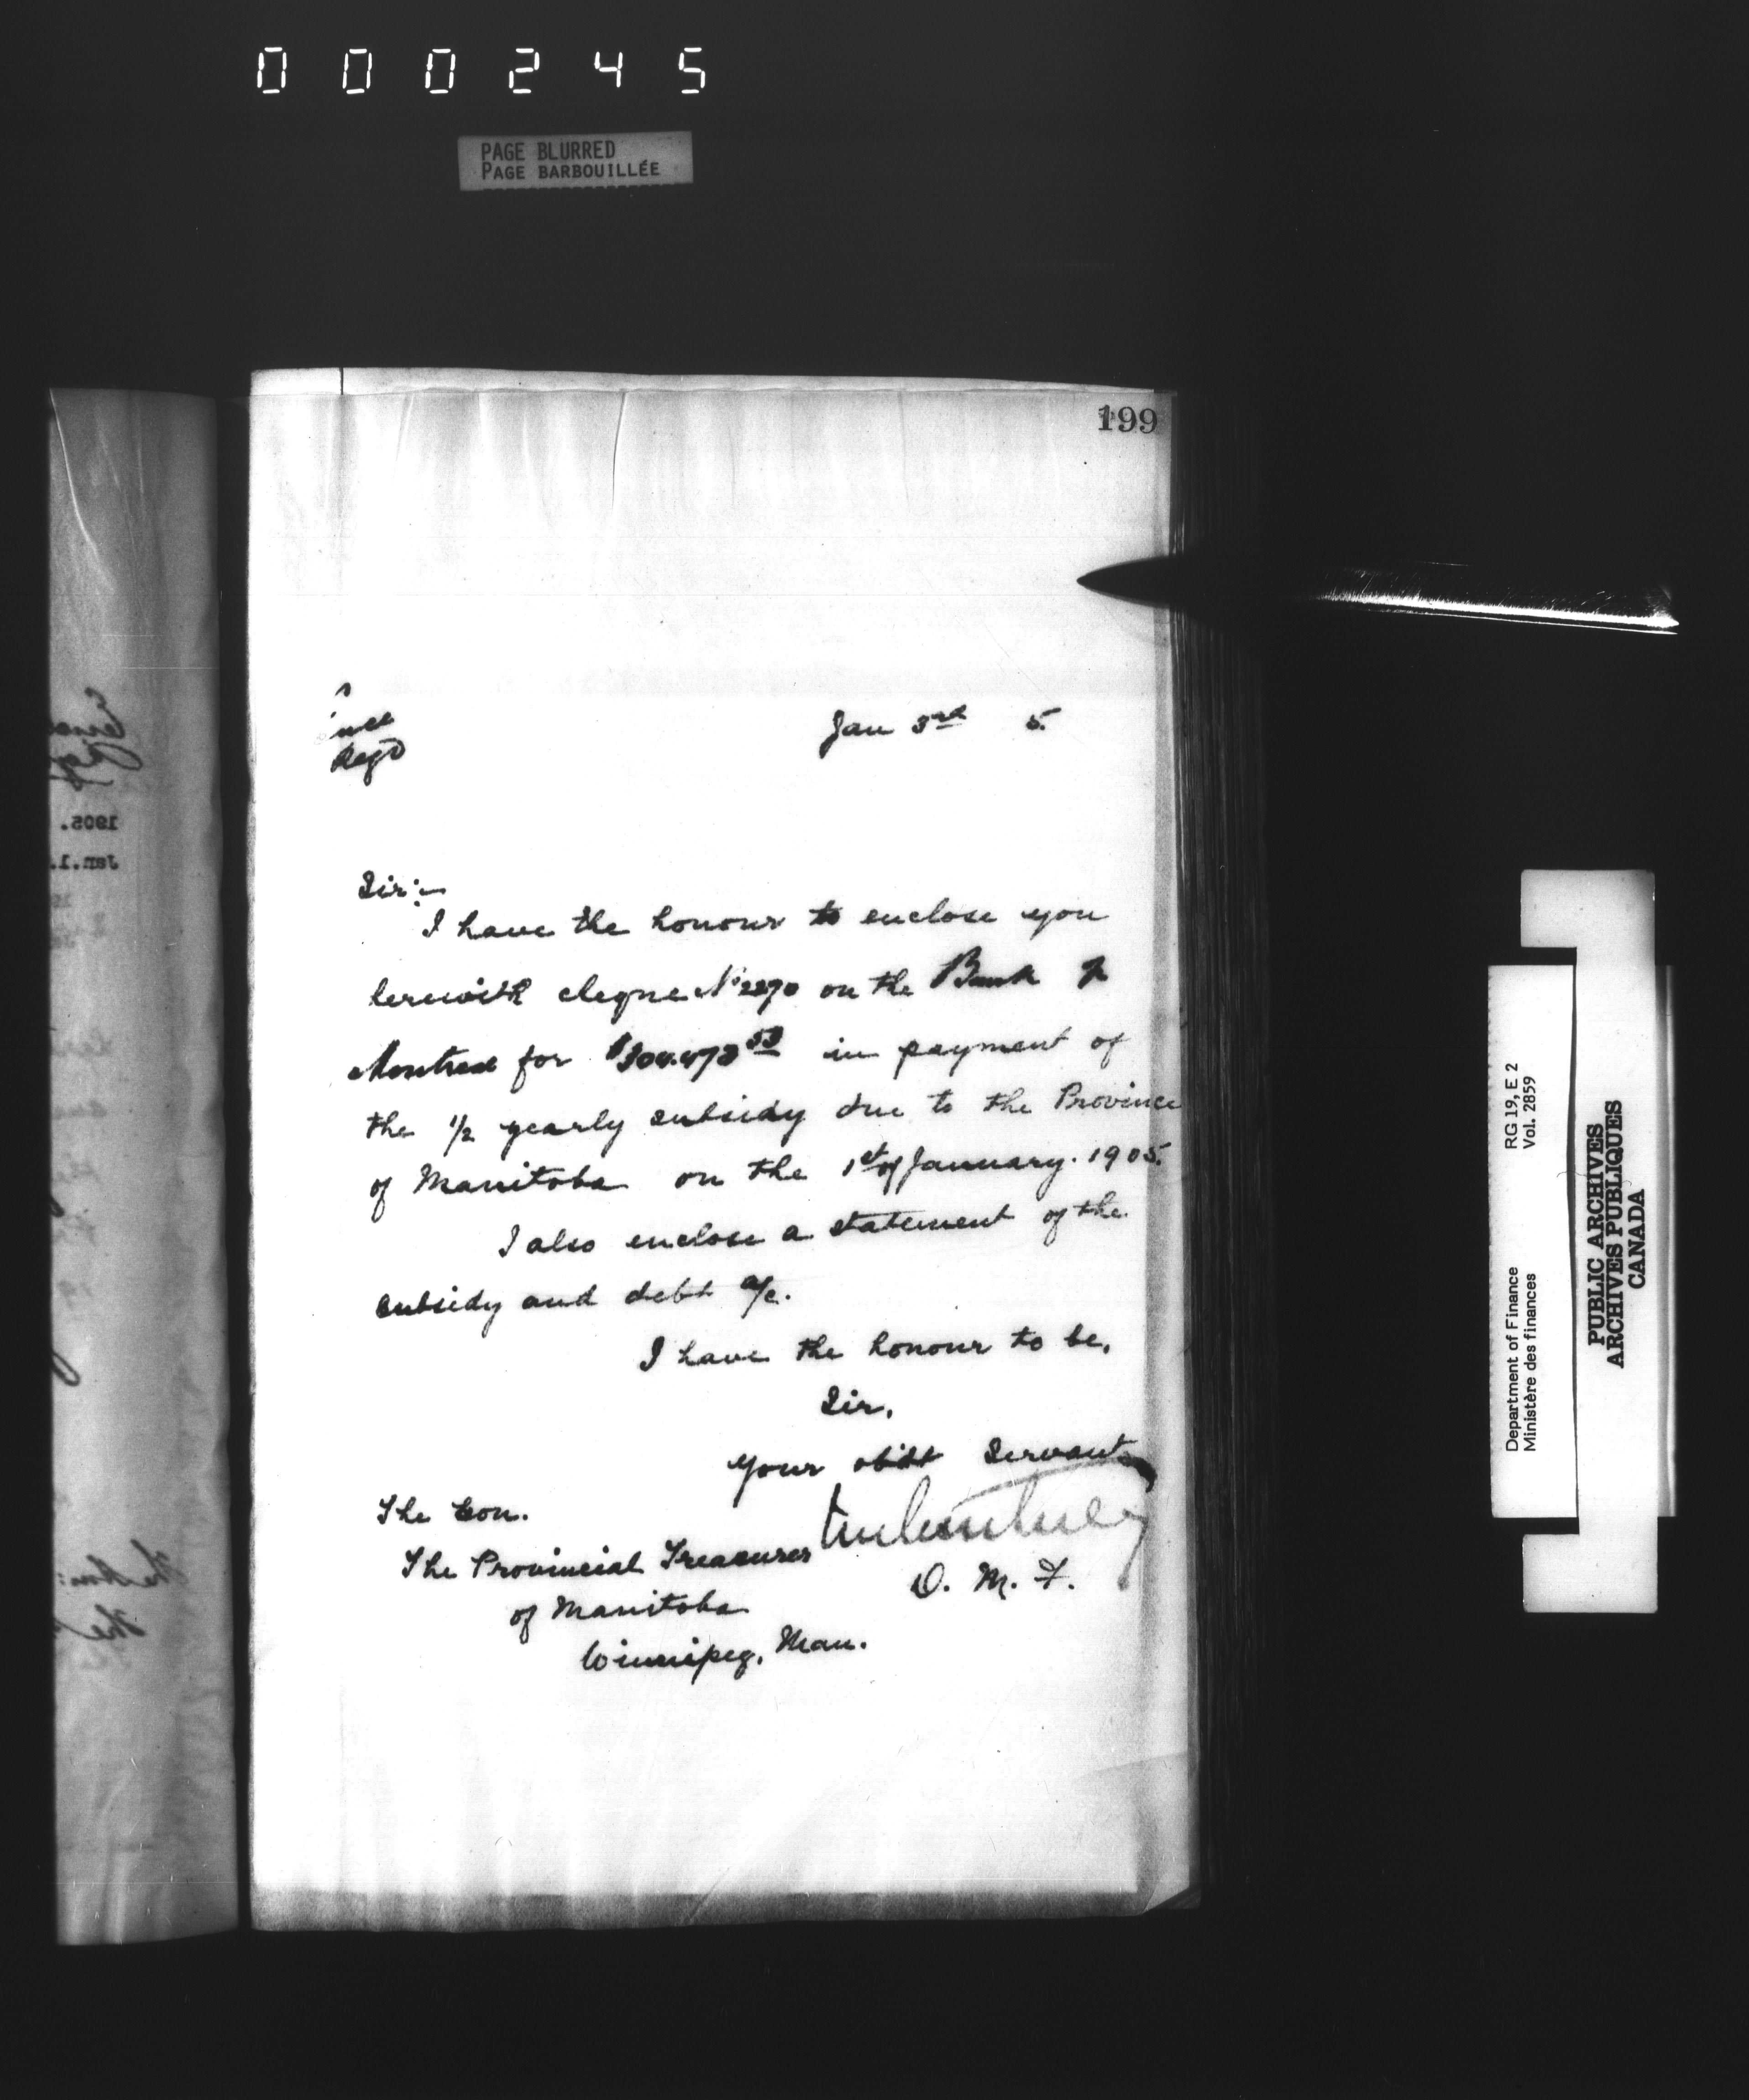 000245
PAGE BLURRED
PAGE BARBOUILLÉE
199
Regd
Jan 3rd 5.
Sir:-
I have the honour to enclose you
herewith cheque No 2270 on the Bank of
Montreal for in payment of
the 1/2 yearly subsidy due to the Province
of Manitoba on the 1st of January. 1905.
I also enclose a statement of the
subsidy and debt a/c.
I have the honour to be,
Sir,
Your obdt Servant
The Hon.
The Provincial Treasurer
D. M. F.
of Manitoba
Winnipeg, Man.
1905.
Jan.1.
RG 19, E 2
Vol. 2859
Department of Finance
Ministère des finances
PUBLIC ARCHIVES
ARCHIVES PUBLIQUES
CANADA